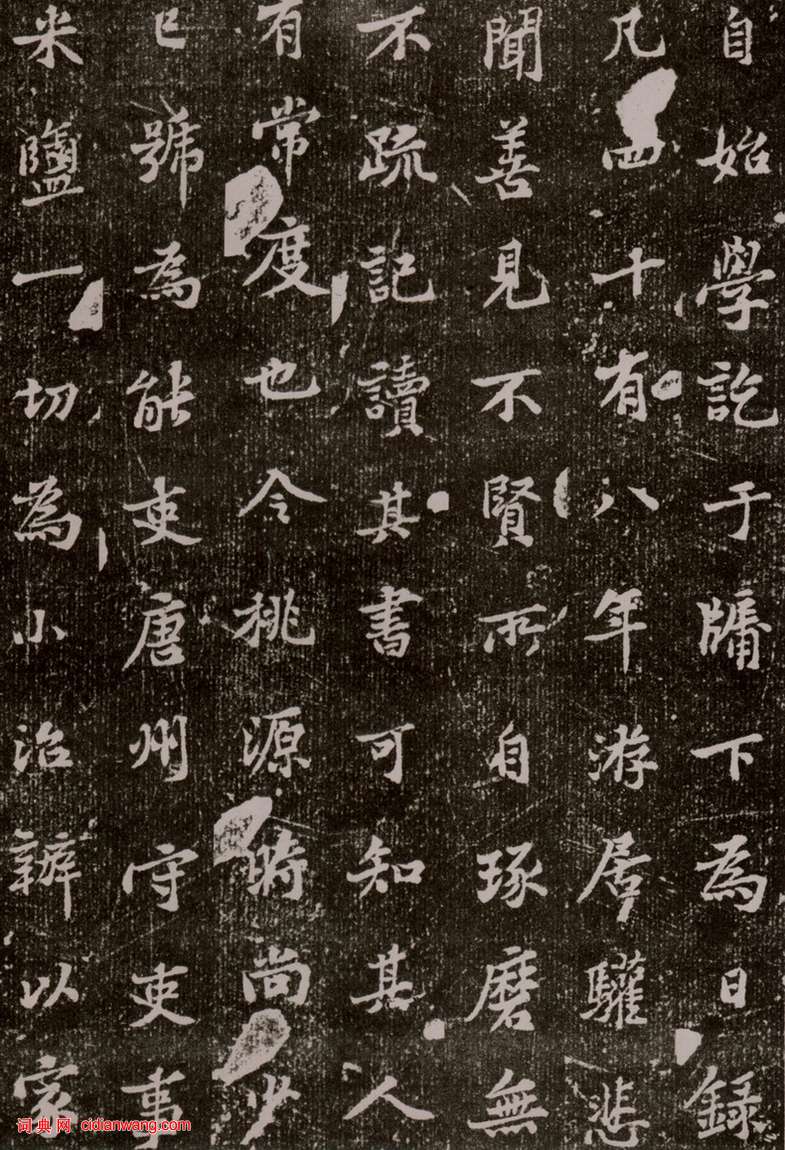 自始學訖于牖下為日錄
凡四十有八年游居驩悲
聞善見不賢所自琢磨無
不疏記讀其書可知其人
有常度也令桃源時尚少
已號為能吏唐州守吏事
米鹽一切為小治辦以家
词典网 cidianwang.com